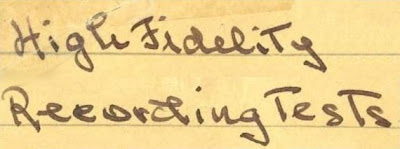 High Fidelity
Recording Tests